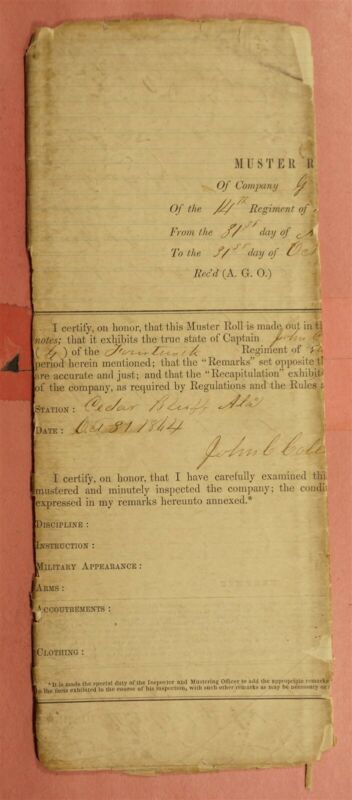 MUSTER R
Of Company G
Of the 14th Regiment of
From the 31st day of
To the 31st day of Oct
Rec'd (A. G. O.)
I certify, on honor, that this Muster Roll is made out in t
notes; that it exhibits the true state of Captain John C
(G) of the Fourteenth Regiment of
period herein mentioned; that the "Remarks" set opposite t
are accurate and just; and that the "Recapitulation" exhibit
of the company, as required by Regulations and the Rules a
STATION: Cedar Bluff Ala
DATE: Oct 31 1864
John C Cole
I certify, on honor, that I have carefully examined thi
mustered and minutely inspected the company; the condi
expressed in my remarks hereunto annexed.*
DISCIPLINE:
INSTRUCTION:
MILITARY APPEARANCE:
ARMS:
ACCOUTREMENTS:
CLOTHING:
*It is made the special duty of the Inspector and Mustering Officer to add the appropriate remarks
to the facts exhibited in the course of his inspection, with such other remarks as may be necessary or